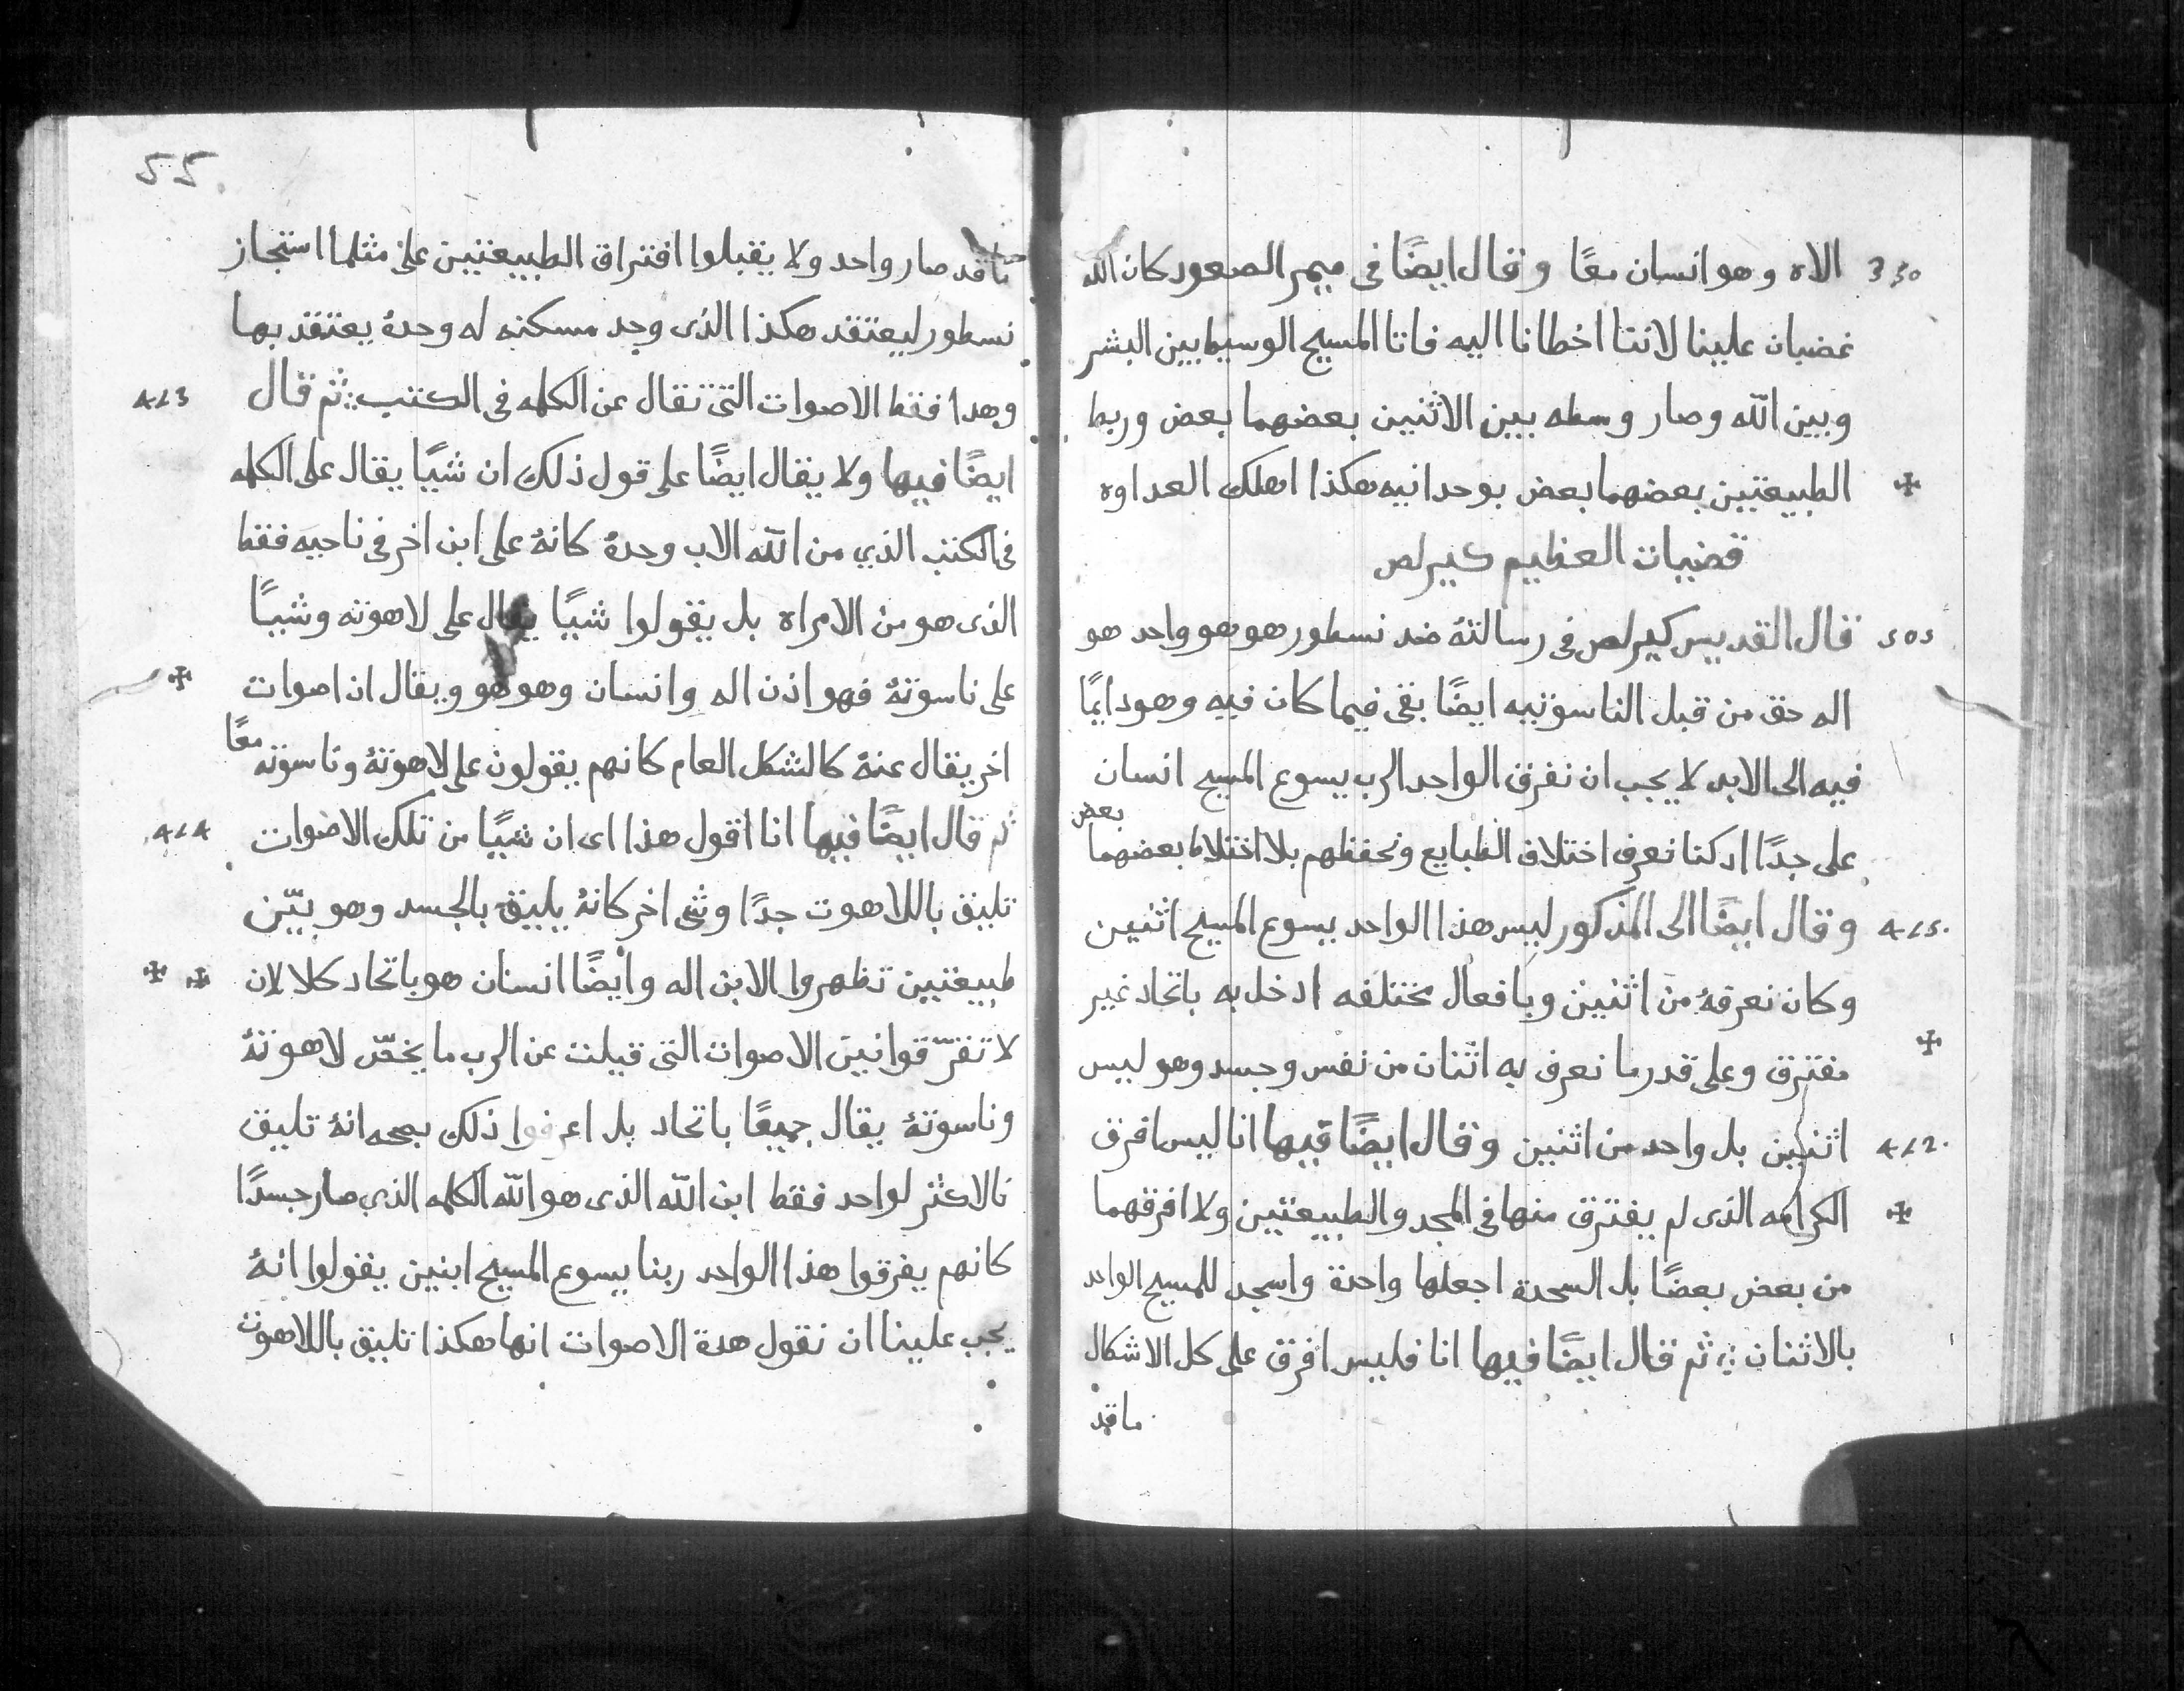 330 الاه وهو انسان معًا وقال ايضًا فى ميمر الصعود كان الله
غضبان علينا لاننا اخطانا اليه فاتا المسيح الوسيط بين البشر
وبين الله وصار وسطه بين الاثنين بعضهما بعض وربط
الطبيعتين بعضهما بعض بوحدانيه هكذا اهلك العداوه
قضيات العظيم كيرلص
505 قال القديس كيرلص فى رسالتهُ ضد نسطور هو هو واحد هو
اله حق من قبل الناسوتيه ايضًا بقى فيما كان فيه وهو دايمًا
فيه الى الابد لا يجب ان نفرق الواحد الرب يسوع المسيح انسان
على جدًا اد كنا نعرف اختلاف الطبايع ونحفظهم بلا اختلاط بعضهما بعض
415. وقال ايضًا الى المذكور ليس هذا الواحد يسوع المسيح اثنين
وكان نعرفهُ من اثنين وبافعال مختلفه ادخل به باتحاد غير
مفترق وعلى قدر ما نعرف به اثنان من نفس وجسد وهو ليس
412. اثنين بل واحد من اثنين وقال ايضًا فيها انا ليس افرق
الكرامه الذى لم يفترق منها فى المجد والطبيعتين ولا افرقهما
من بعض بعضًا بل السجدة اجعلها واحدة واسجد للمسيح الواحد
بالاثنان ثم قال ايضًا فيها انا فليس افرق على كل الاشكال
ما قد
55
ما قد صار واحد ولا يقبلوا افتراق الطبيعتين على مثلما استجاز
نسطور ليعتقد هكذا الذى وجد مسكنه له وحدهُ يعتقد بها
وهدا فقط الاصوات التى تقال عن الكلمه فى الكتب ثم قال 413
ايضًا فيها ولا يقال ايضًا على قول ذلك ان شيًا يقال على الكلمه
فى الكتب الذي من الله الاب وحدهُ كانهُ على ابن اخر فى ناحيه فقط
الذى هو من الامراه بل يقولوا شيًا يقال على لاهوته وشيًا
على ناسوتهُ فهو اذن اله وانسان وهو هو ويقال ان اصوات
اخر يقال عنهُ كالشكل العام كانهم يقولون على لاهوتهُ وناسوته معًا
ثم قال ايضًا فيها انا اقول هذا اى ان شيًا من تلك الاصوات 414
تليق باللاهوت جدًا وشى اخر كانهُ يليق بالجسد وهو بيّن
طبيعتين تظهروا الابن اله وأيضًا انسان هو باتحاد كلا لان
لا تفرّ قوانين الاصوات التى قيلت عن الرب ما يخصّ لاهوتهُ
وناسوتهُ يقال جميعًا باتحاد بل اعرفوا ذلك انهُ تليق
بالاكثر لواحد فقط ابن الله الذى هو الله الكلمه الذي صار جسدًا
كانهم يفرقوا هذا الواحد ربنا يسوع المسيح ابنين يقولوا انهُ
يجب علينا ان نقول هدة الاصوات انها هكذا تليق باللاهوت